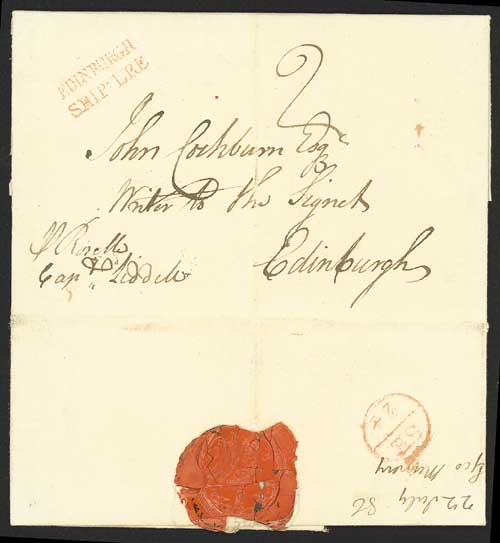 EDINBURGH
SHIP-LRE
2
John Cockburn Esqr
Writer to the Signet
Edinburgh
Capn Liddell
22 July 86
Geo